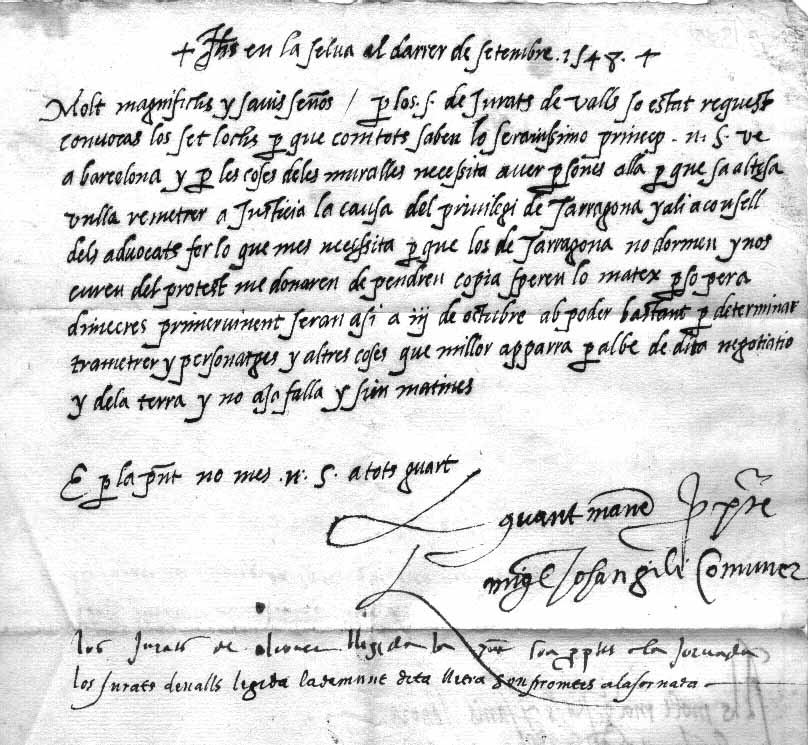 + Jhs en la selva al darrer de setembre. 1548. +
Molt magnifichs y savis señors / p los .s. de Jurats de valls so estat request
convocas los set lochs p que com tots saben lo serenissimo princep .n. S. ve
a barcelona y p les coses deles muralles necessita aver psones alla p que sa altesa
vulla remetrer a Justicia la causa del privilegi de Tarragona y ali aconsell
dels advocats fer lo que mes necessita p que los de Tarragona no dormen y nos
curen del protest me donaren de pendreu copia speren lo matex pso pera
dimecres primervinent seran asi a iij de octubre ab poder bastant p determinar
trametrer y personatges y altres coses que millor apparra p albe de dita negotiatio
y dela terra y no aja falla y sien matines
E p la pnt no mes .n. S. a tots guart
quant mane
migl Comuner
los Jurats de legida la a la Jornada
los Jurats de valls legida la demunt dita lletra son promtes a la Jornada